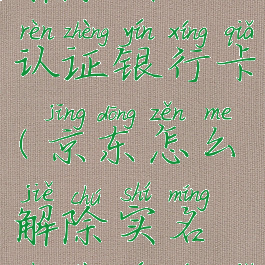 rèn zhèng yín xíng qiǎ
认证银行卡
jīng dōng zěn me
(京东怎么
jiě chú shí míng
解除实名